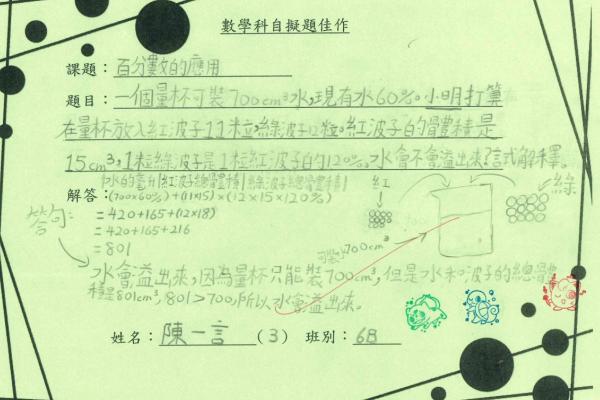 數學科自擬題佳作
課題：百分數的應用
題目：一個量杯可裝700cm³水，現有水60%。小明打算
在量杯放入紅波子11粒，綠波子12粒。紅波子的體積是
15cm³，1粒綠波子是1粒紅波子的120%。水會不會溢出來？試解釋。
水的容量 紅波子總體積 綠波子總體積
解答：(700×60%)+(11×15)×(12×15×120%)
紅
綠
答句：
=420+165+(12×18)
=420+165+216
=801
可裝700cm³
水會溢出來，因為量杯只能裝700cm³，但是水和波子的總體
積是801cm³，801>700，所以水會溢出來。
姓名：陳一言 （3） 班別：6B